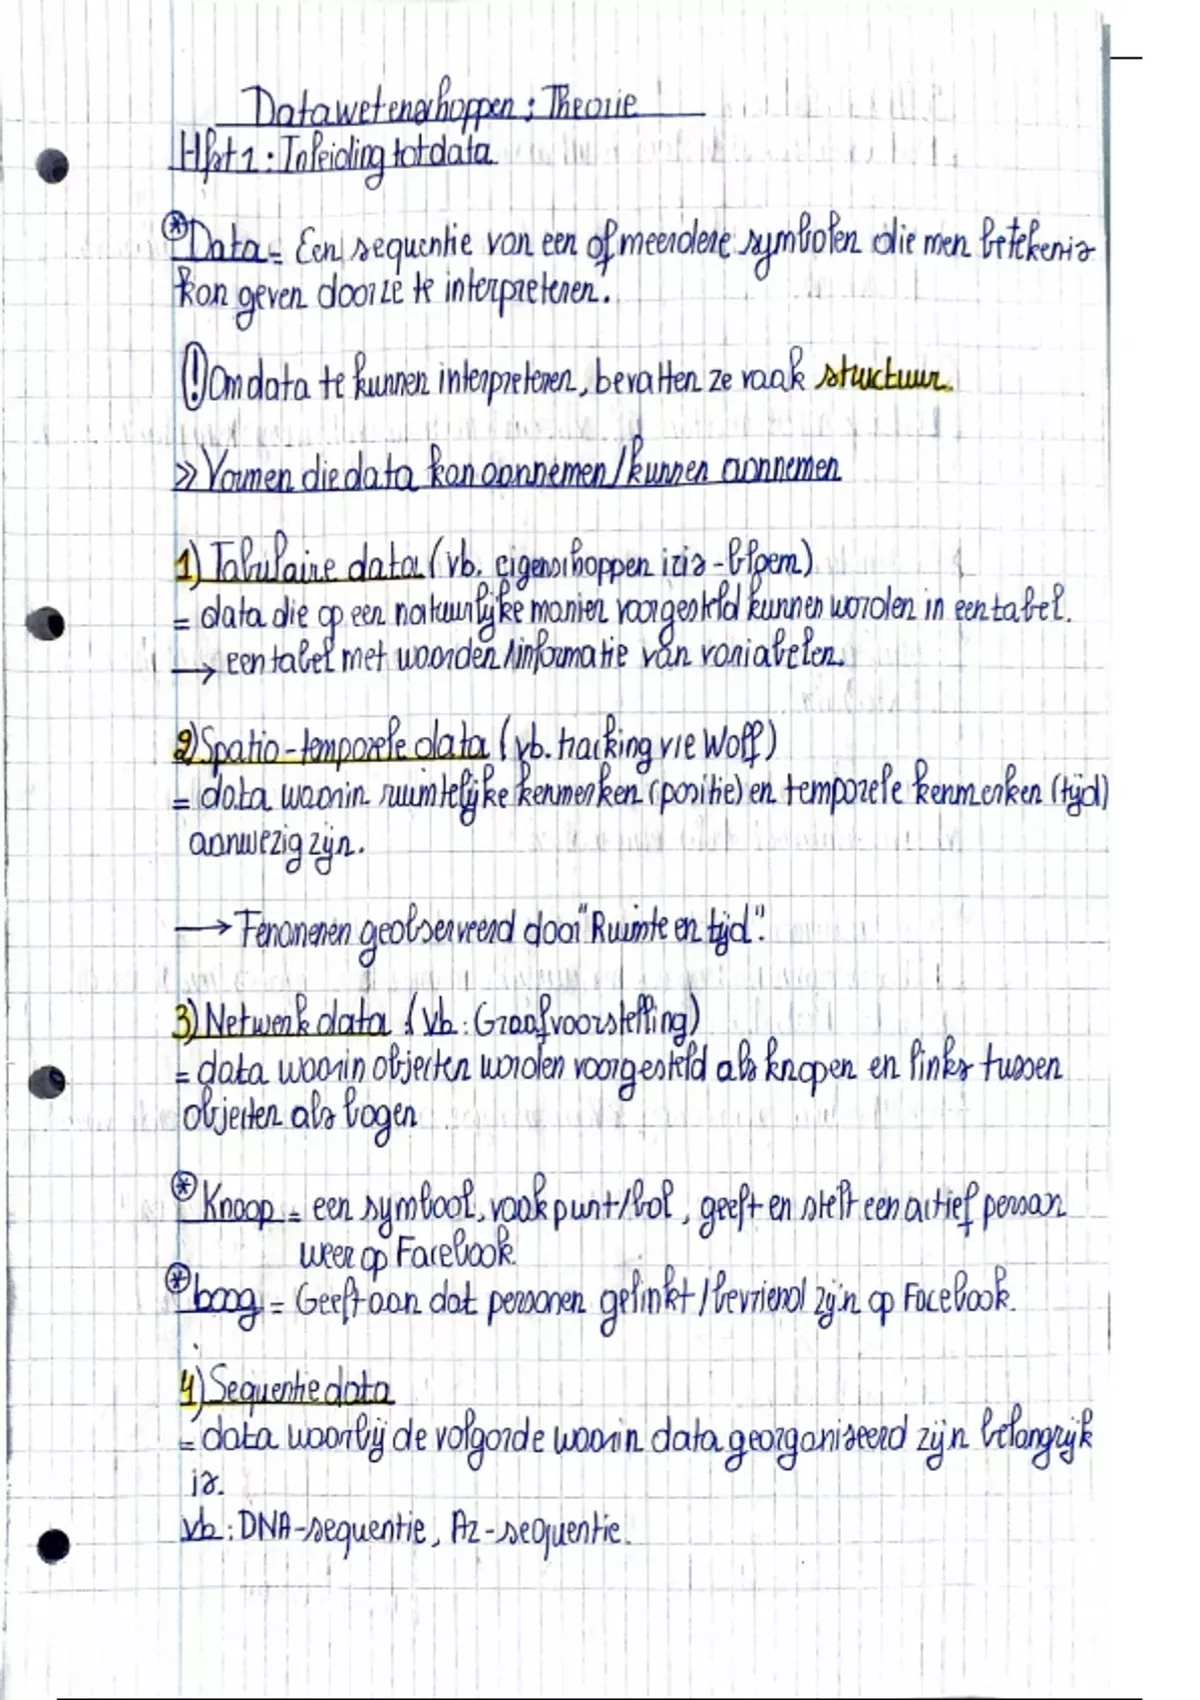 Datawetenschappen : Theorie
Hfst 1 : Inleiding tot data
* Data = Een sequentie van een of meerdere symbolen die men betekenis
kan geven door ze te interpreteren.
! Om data te kunnen interpreteren, bevatten ze vaak structuur.
>> Vormen die data kan aannemen / kunnen aannemen
1) Tabulaire data (vb. eigenschappen iris-bloem)
= data die op een natuurlijke manier voorgesteld kunnen worden in een tabel.
→ een tabel met woorden/informatie van variabelen.
2) Spatio-temporele data (vb. tracking vie Wolf)
= data waarin ruimtelijke kenmerken (positie) en temporele kenmerken (tijd)
aanwezig zijn.
→ Fenomenen geobserveerd door "Ruimte en tijd".
3) Netwerk data (vb : Graafvoorstelling)
= data waarin objecten worden voorgesteld als knopen en links tussen
objecten als bogen
* Knoop = een symbool, vaak punt/bol, geeft en stelt een actief persoon
weer op Facebook.
* boog = Geeft aan dat personen gelinkt / bevriend zijn op Facebook.
4) Sequentie data
= data waarbij de volgorde waarin data georganiseerd zijn belangrijk
is.
vb : DNA-sequentie, AZ-sequentie.